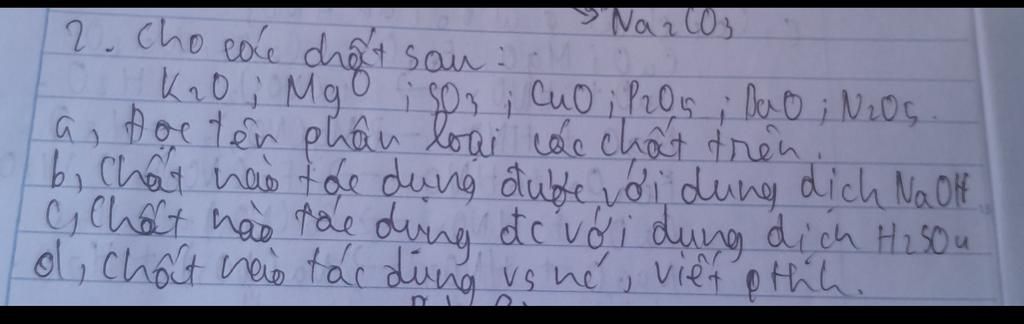 → Na2CO3
2. Cho các chất sau:
K2O; MgO; SO3; CuO; P2O5; BaO; N2O5.
a, Đọc tên phân loại các chất trên.
b, Chất nào tác dụng được với dung dịch NaOH
c, Chất nào tác dụng đc với dung dịch H2SO4
d, Chất nào tác dụng vs nc, viết pthh.